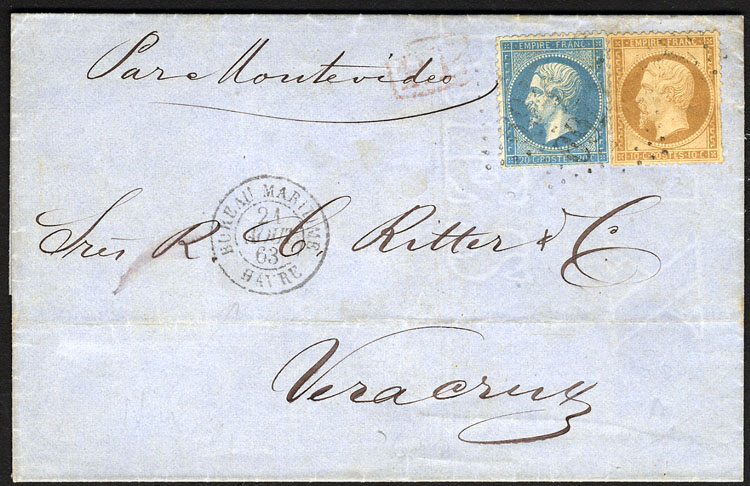 Par Montevideo
EMPIRE FRANC
20 C POSTES
EMPIRE FRANC
10 C POSTES 10 C
BUREAU MARITIME
21
AOUT
63
HAVRE
Srēs R. C. Ritter & C
Veracruz